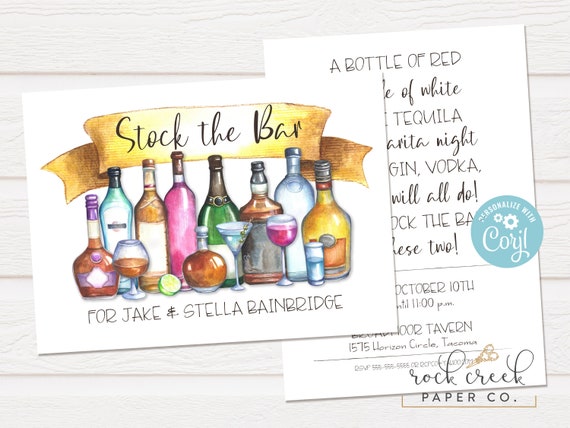 Stock the Bar
FOR JAKE & STELLA BAINBRIDGE
A BOTTLE OF RED
of white
TEQUILA
night
GIN, VODKA,
will all do!
THE BA
these two!
OCTOBER 10TH
until 11:00 p.m.
TAVERN
1575 Horizon Circle, Tacoma
RSVP 555-555-5555 OR
PERSONALIZE WITH
Corjl
rock creek
PAPER CO.